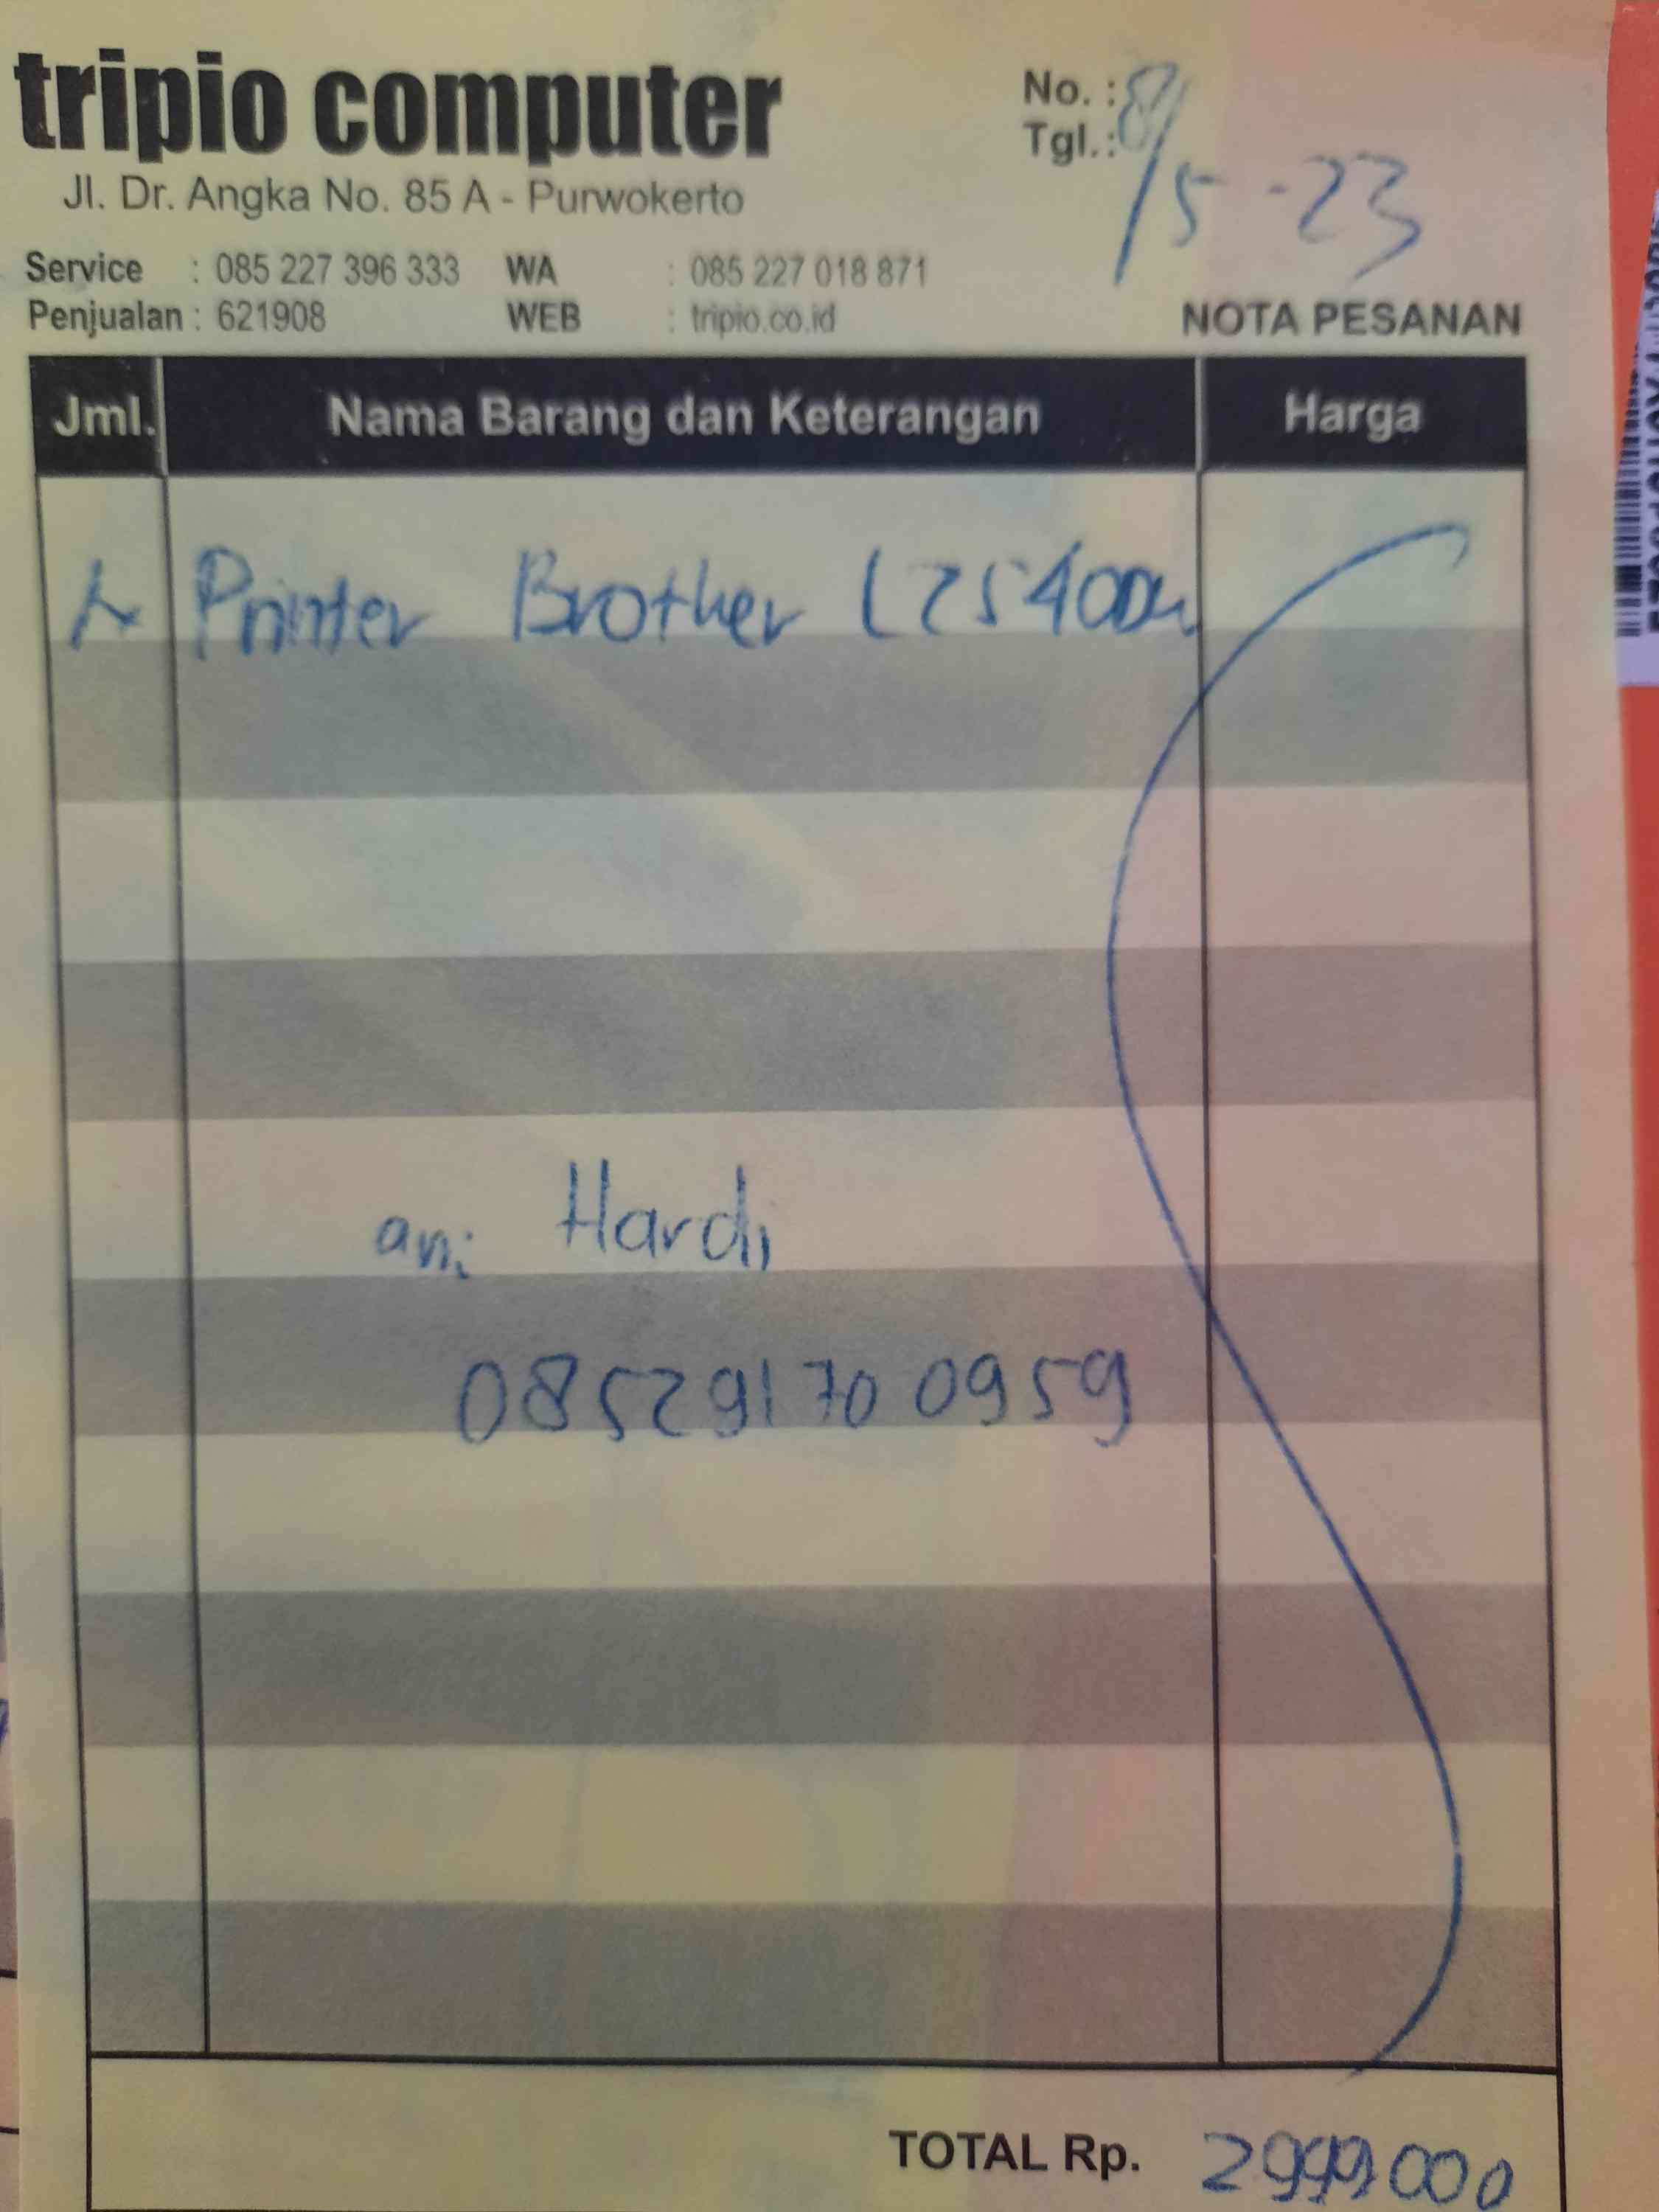 tripio computer
Jl. Dr. Angka No. 85 A - Purwokerto
Service : 085 227 396 333 WA : 085 227 018 871
Penjualan : 621908 WEB : tripio.co.id
No. :
Tgl.: 8/5-23
NOTA PESANAN
Jml. Nama Barang dan Keterangan Harga
1 Printer Brother L2540DW
an: Hardi
085291700959
TOTAL Rp. 2999000